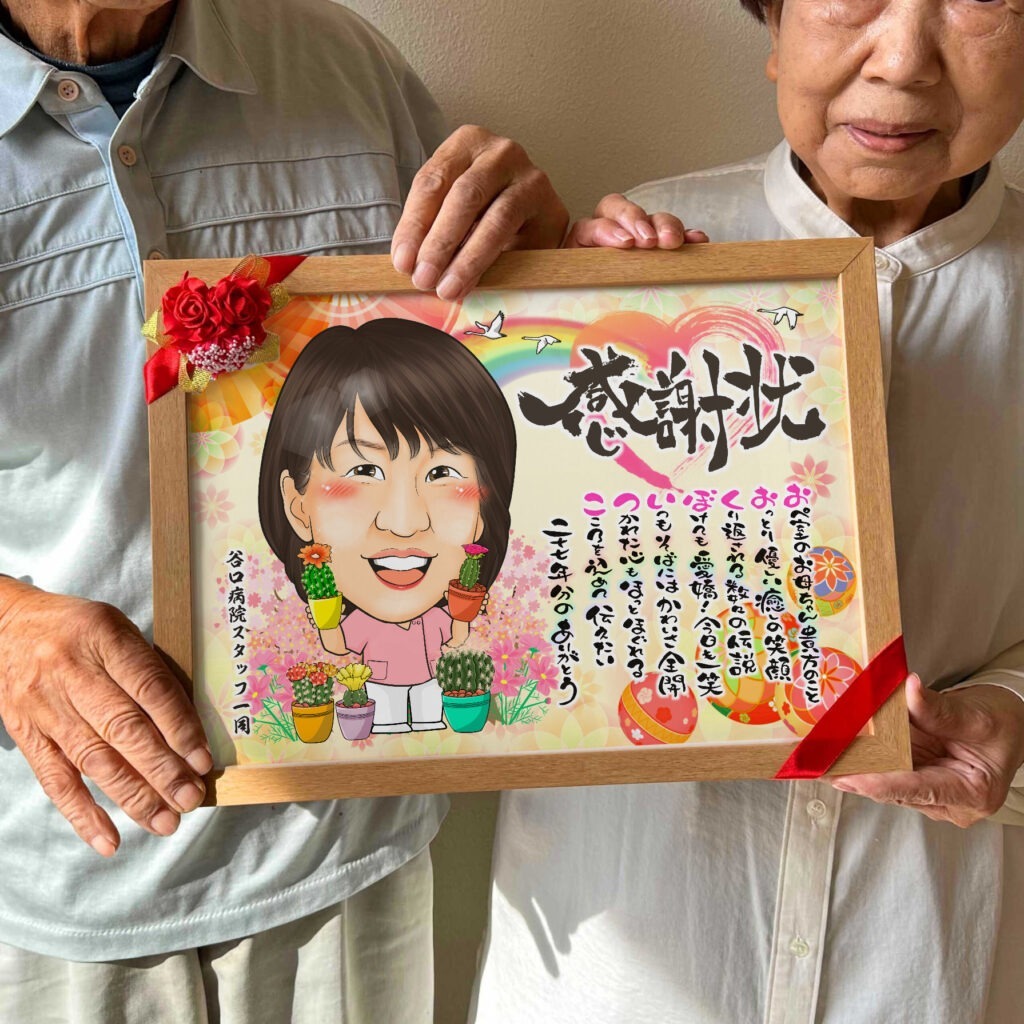 感謝状
おペ室のお母ちゃん貴方のこと
おっとり優しい癒しの笑顔
くり返される数々の伝説
ぼけも愛嬌！今日も一笑
いつもそばにはかわいさ全開
つかれた心もほっとほぐれる
こころを込めて伝えたい
二十七年分のありがとう
谷口病院スタッフ一同